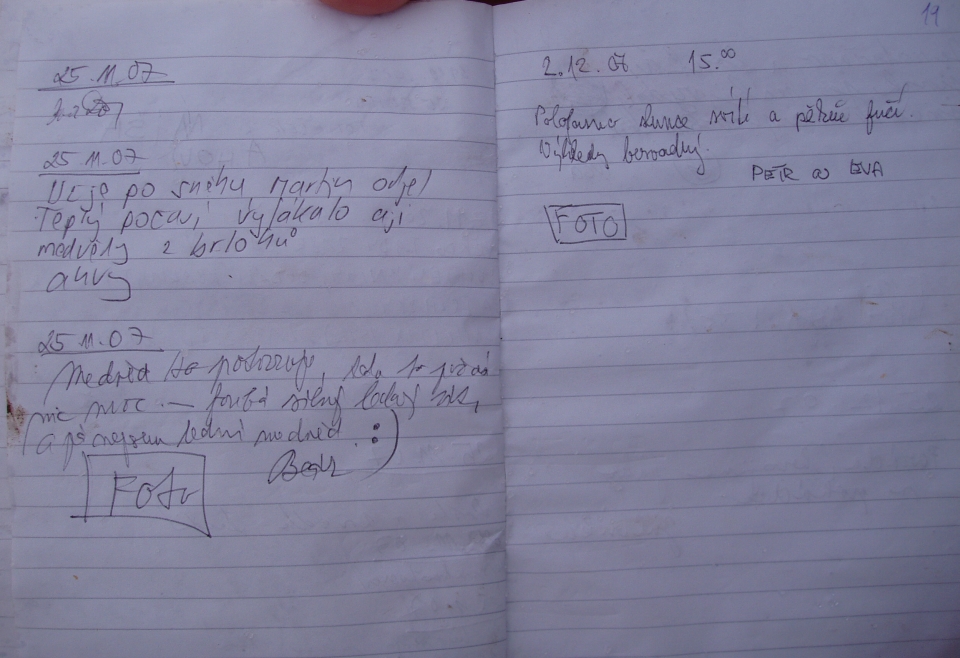 25.11.07
25 11.07
Už je po sněhu Martin odjel
Teplý počasí vylákalo aji
medvědy z brlohů
ahoj
25 11.07
Medvěd to potvrzuje,
nic moc — fouká silný ledový
(a já nejsem lední medvěd :)
FOTO
11
2.12.07 15.00
Polojasno slunce svítí a pěkně fučí.
Výhledy bezvadný.
PETR a EVA
FOTO